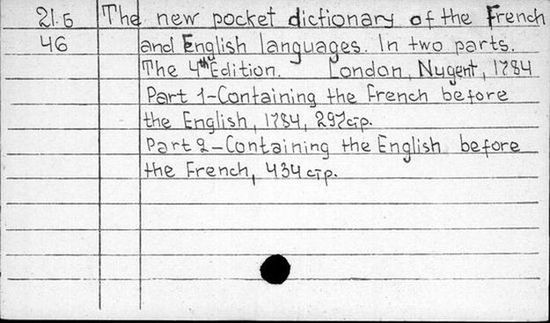 21.б The new pocket dictionary of the French
46 and English languages. In two parts.
The 4th Edition. London, Nugent, 1784
Part 1-Containing the French before
the English, 1784, 297 стр.
Part 2-Containing the English before
the French, 434 стр.